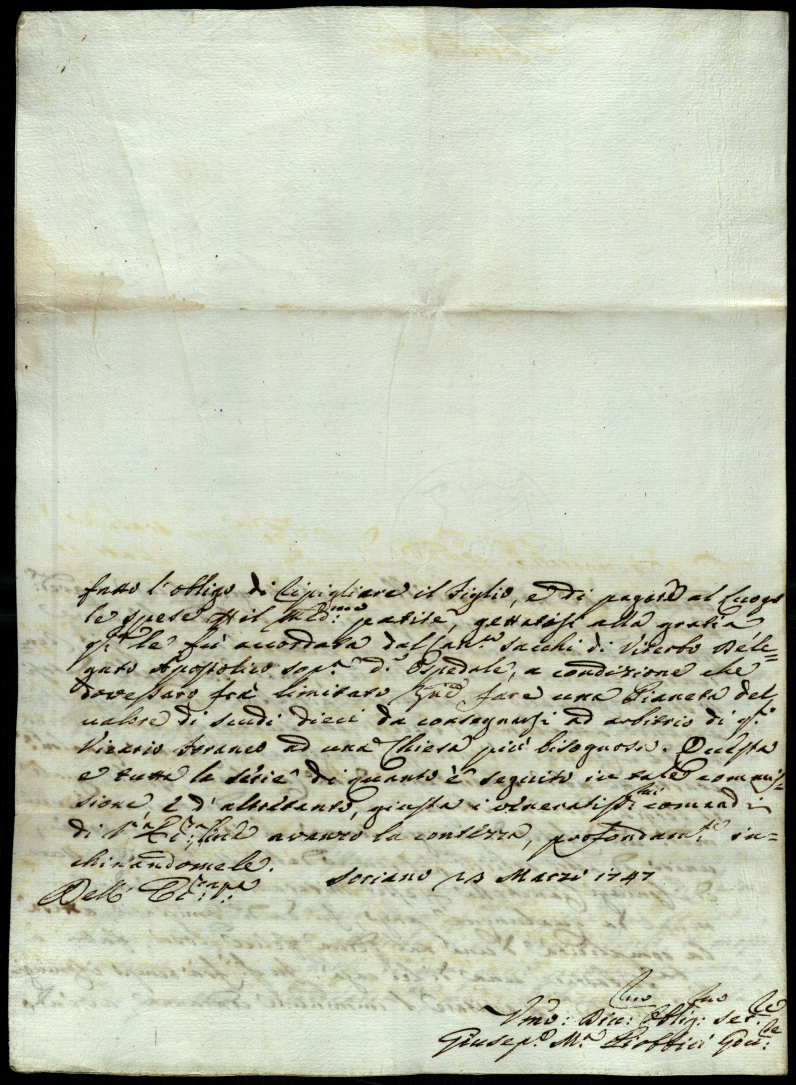 fatto l'obligo di ripigliare il figlio, e di pagare al luogo
le spese p il med.mo patite, gettatisi alla gratia
q.ta le fù accordata dal Can.co Sacchi di Viterbo Dele=
gato Apostolico sop.a d.o Ospedale, a condizione che
dovessero frà limitato fare una Pianeta del
valore di scudi dieci da consegnarsi ad arbitrio di q.o
Vicario foraneo ad una Chiesa più bisognosa. Questa
e tutta la serie di quanto è seguito in tale commis=
sione, e d'altrettanto, giusta i veneratissimi comandi
di V.a Ecc.za avanzo la contezza, profondam.te in=
chinandomele.
Dell' Ecc.za V.a Soriano 13 Marzo 1747
Umo: Dmo: Oblig: Ser.re
Giusep.e M.a Gov.re